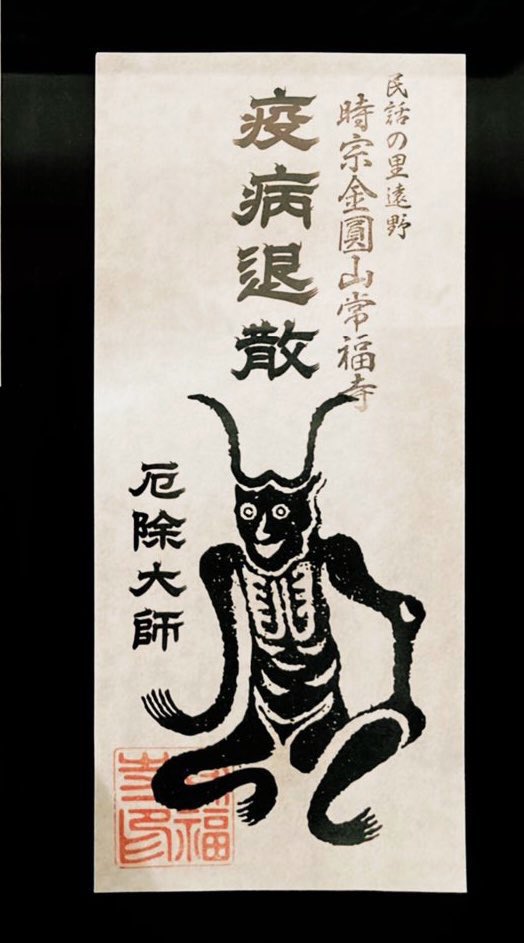 民話の里遠野
時宗金圓山常福寺
疫病退散
厄除大師